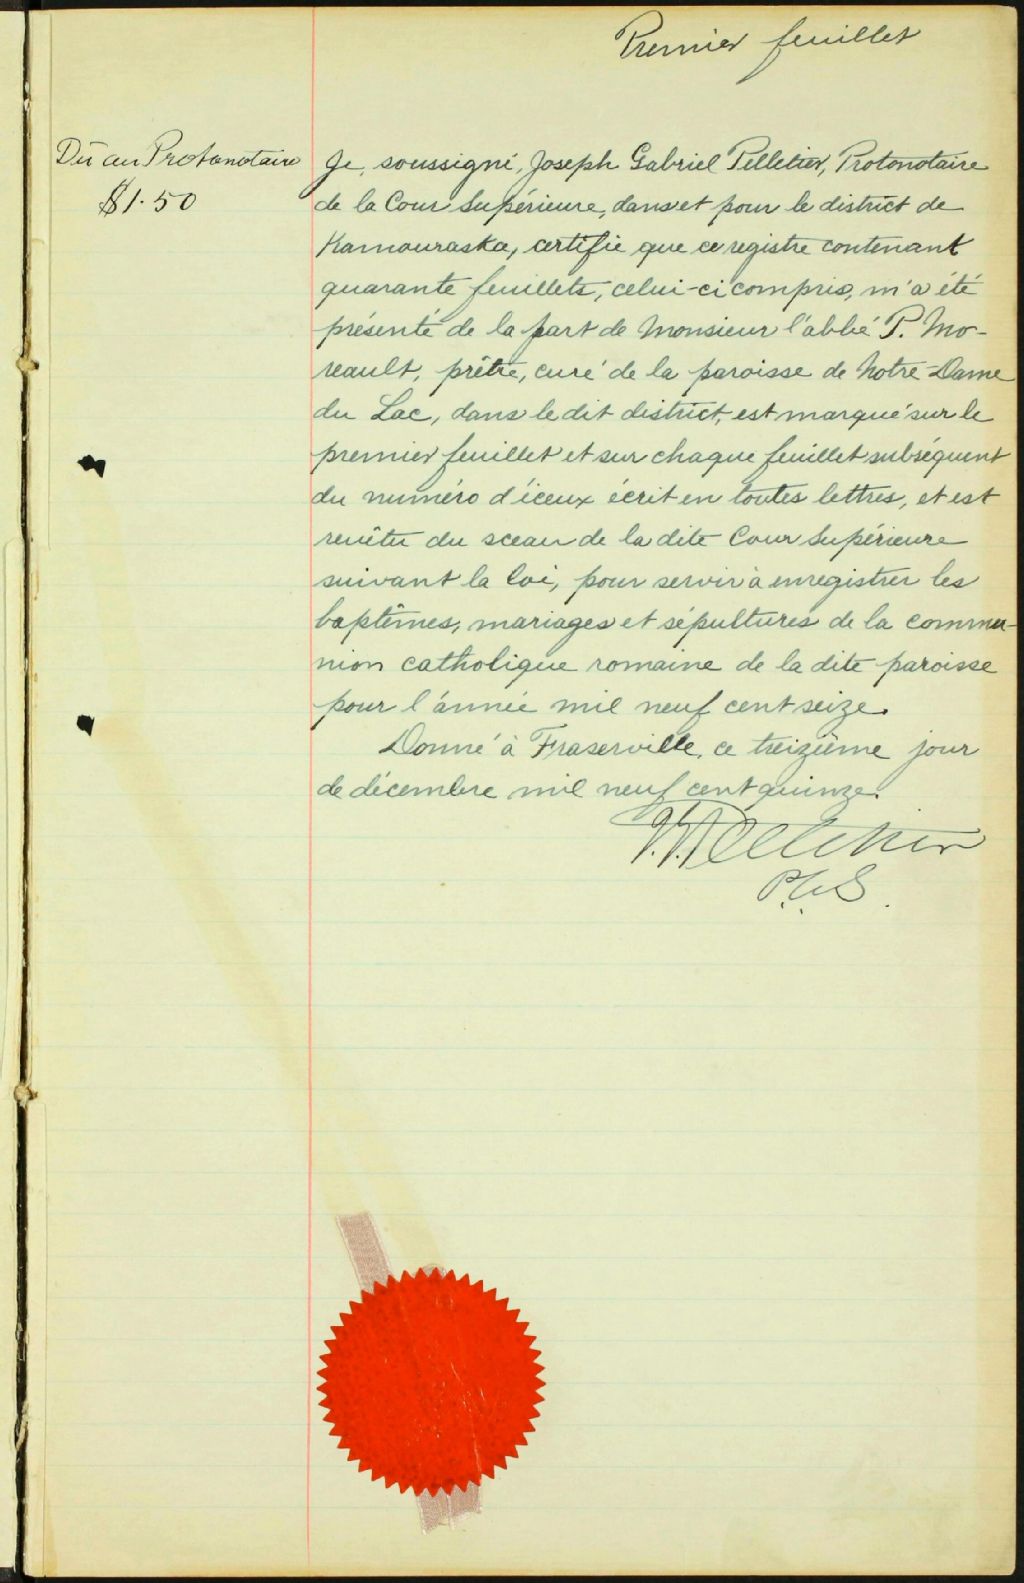 Premier feuillet
Dû au Protonotaire
$1.50
Je, soussigné, Joseph Gabriel Pelletier, Protonotaire
de la Cour Supérieure, dans et pour le district de
Kamouraska, certifie que ce registre contenant
quarante feuillets, celui-ci compris, m'a été
présenté de la part de Monsieur l'abbé P. Mo-
reault, prêtre, curé de la paroisse de Notre-Dame
du Lac, dans le dit district, est marqué sur le
premier feuillet et sur chaque feuillet subséquent
du numéro d'iceux écrit en toutes lettres, et est
revêtu du sceau de la dite Cour Supérieure
suivant la loi, pour servir à enregistrer les
baptêmes, mariages et sépultures de la commu-
nion catholique romaine de la dite paroisse
pour l'année mil neuf cent seize.
Donné à Fraserville, ce treizième jour
de décembre mil neuf cent quinze.
J.G. Pelletier
P.C.S.